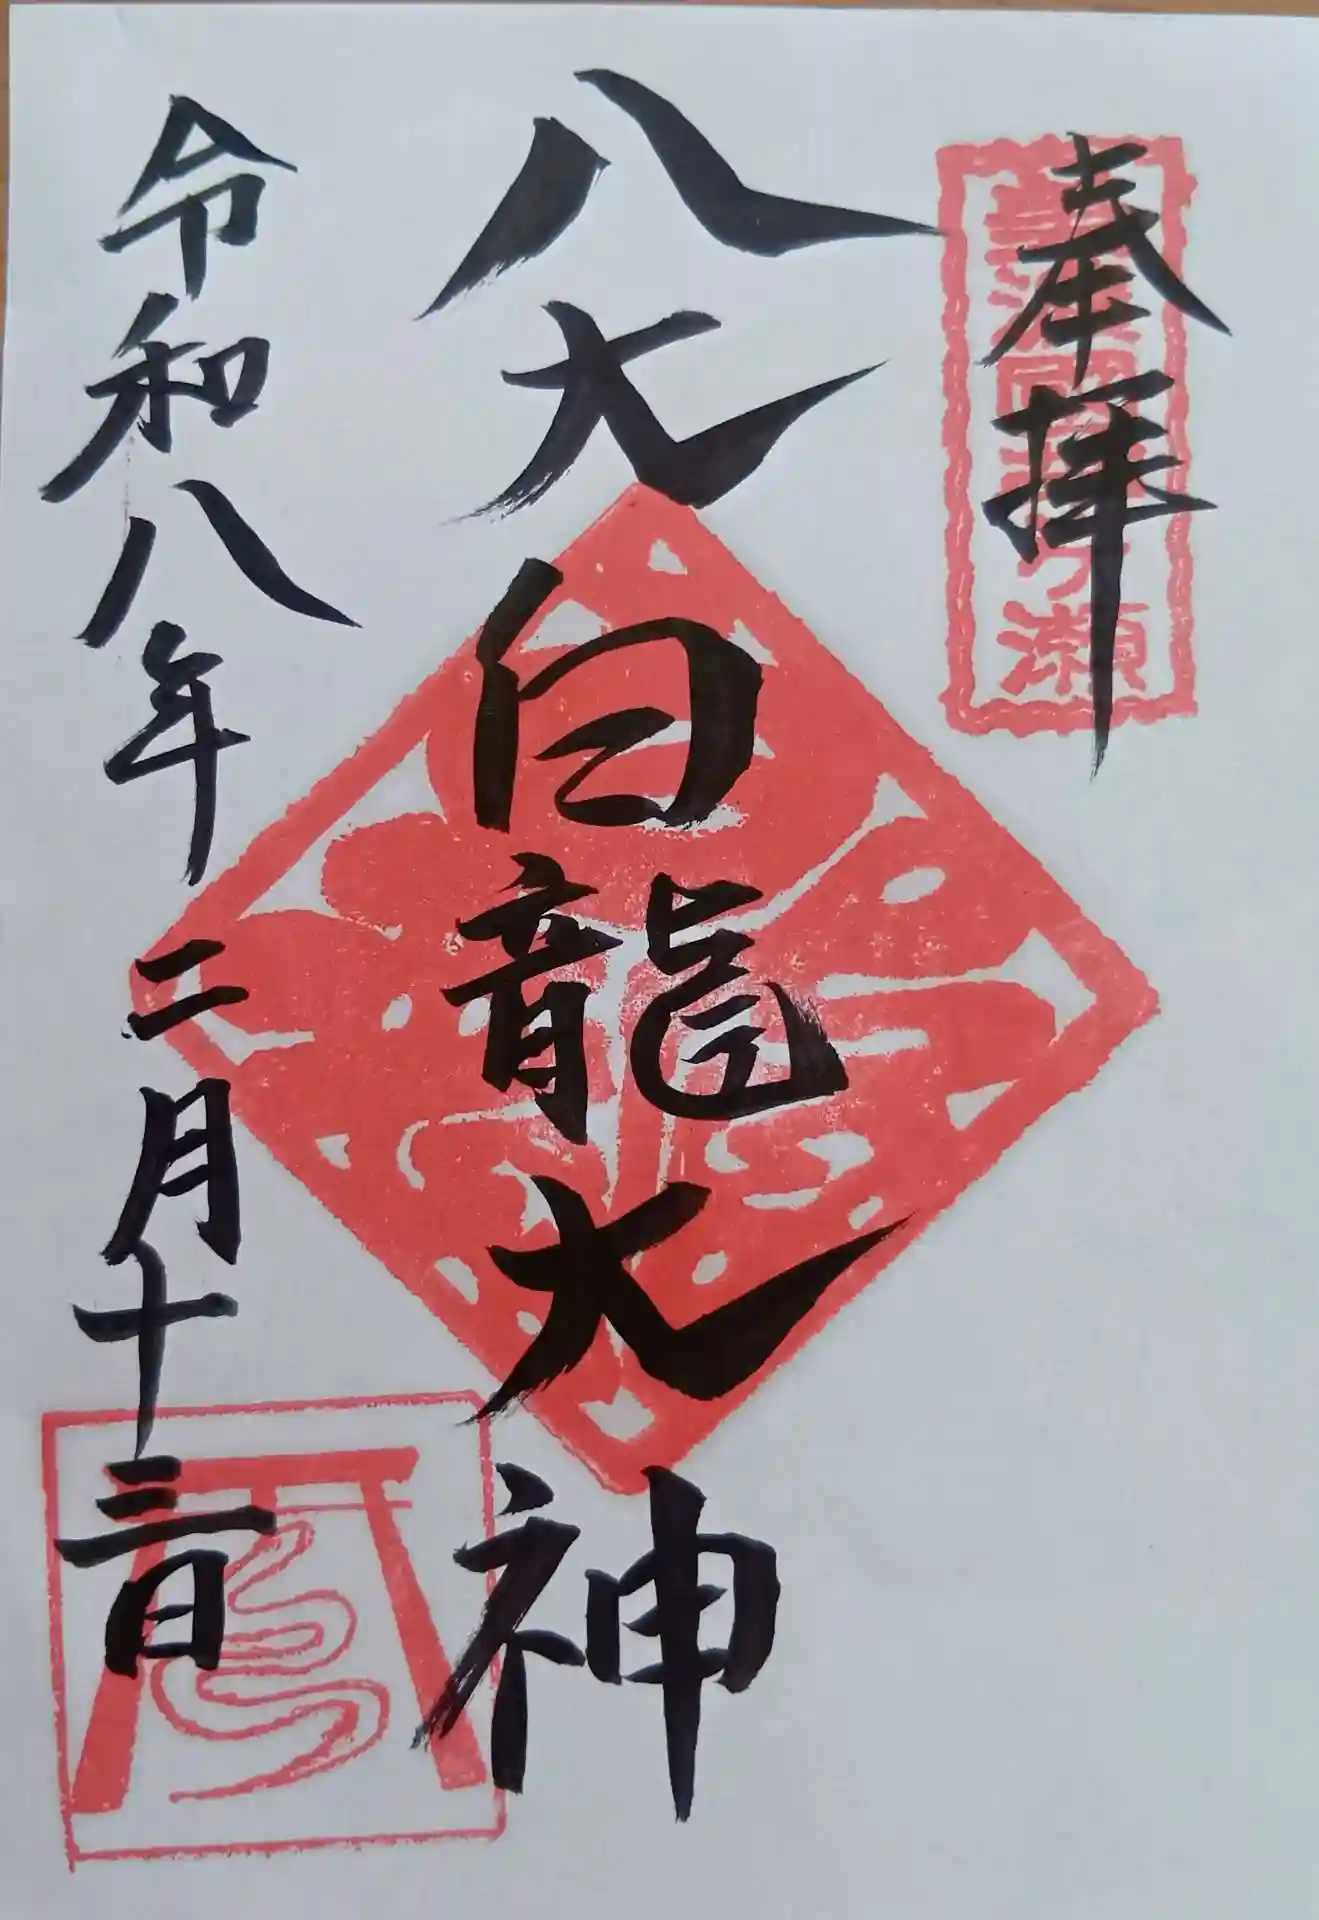 奉拝
八大白龍大神
令和八年二月十三日